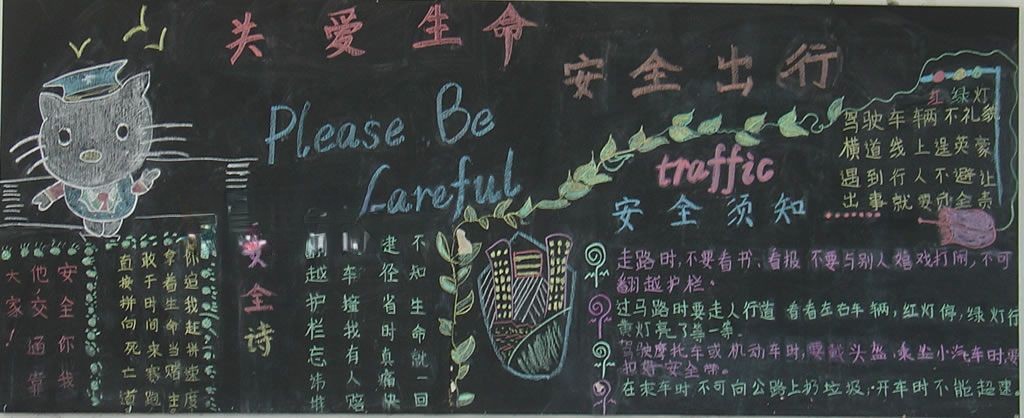 关爱生命
安全出行
Please Be
Careful
traffic
安全须知
红绿灯
驾驶车辆不礼貌
横道线上逞英豪
遇到行人不避让
出事就要负全责
走路时,不要看书、看报 不要与别人嬉戏打闹,不可
翻越护栏、
过马路时要走人行道 看看左右车辆,红灯停,绿灯行
黄灯亮了等一等。
驾驶摩托车或机动车时,要戴头盔,乘坐小汽车时,要
扣好安全带。
在乘车时不可向公路上扔垃圾,开车时不能超速。
安全诗
不知生命就一回
逮径省时真痛快
车撞我有人赔
翻越护栏忘
你追我赶拼速度
拿着生命当赌注
敢于时间来赛跑
直接拼向死亡道
安全你我
他交通靠
大家!